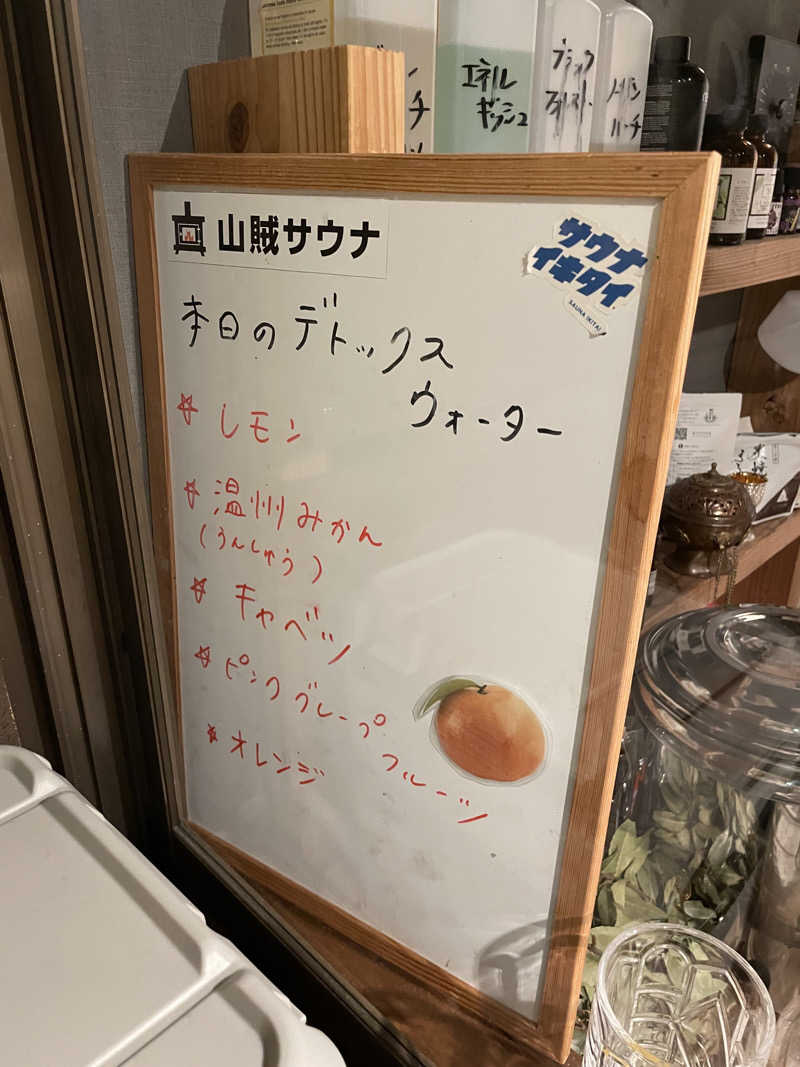 エネル
ギッシュ
ブラック
山賊サウナ
サウナ
イキタイ
SAUNA IKITAI
本日のデトックス
ウォーター
☆ レモン
☆ 温州みかん
(うんしゅう)
☆ キャベツ
☆ ピンクグレープ
フルーツ
☆ オレンジ